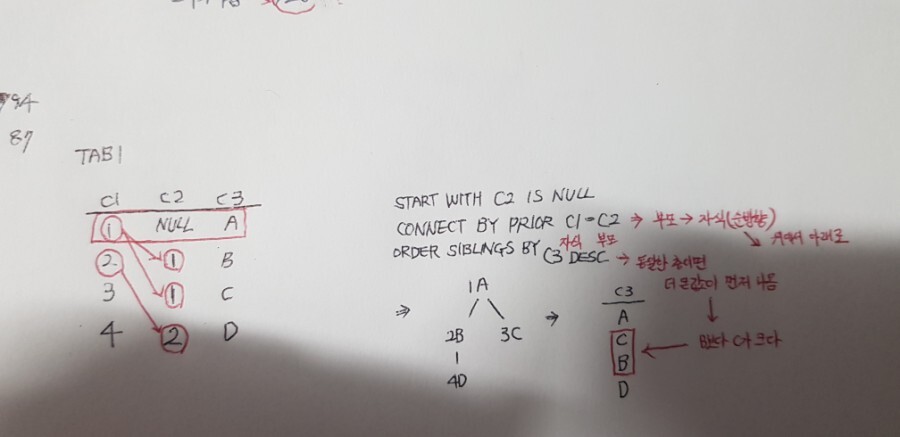 794
87
TAB1
C1 C2 C3
1 NULL A
2 1 B
3 1 C
4 2 D
START WITH C2 IS NULL
CONNECT BY PRIOR C1=C2 → 부모 → 자식(순방향)
자식 부모
↘ 위에서 아래로
ORDER SIBLINGS BY C3 DESC → 동일한 층이면
더 큰값이 먼저 나옴
⇒ 1A
2B 3C
4D
⇒ C3
A
C
B ← B보다 C가 크다
D